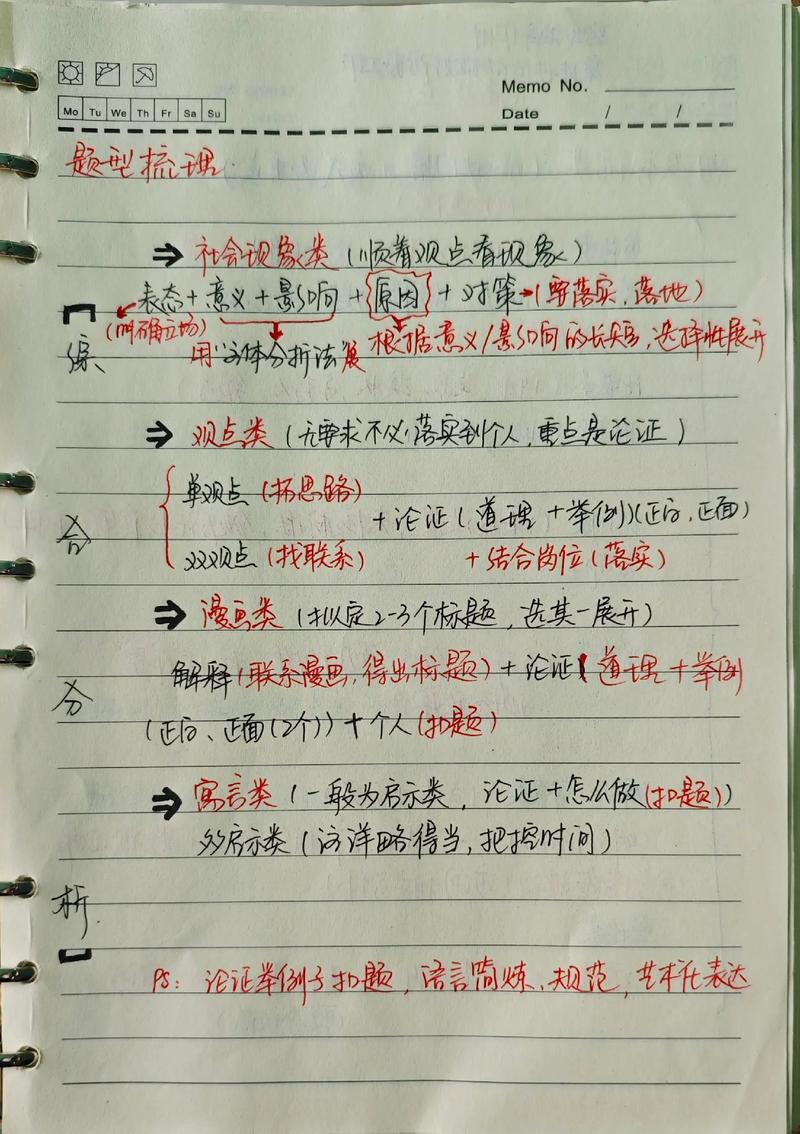 Memo No.
Mo Tu We Th Fr Sa Su
Date / /
题型梳理.
⇒ 社会现象类 (顺着观点看现象)
表态 + 意义 + 影响 + {原因} + 对策 → (要落实、落地)
(明确立场)
用"主体分析法"展
根据意义/影响的长短,选择性展开
【综合分析】
⇒ 观点类 (无要求不必落实到个人,重点是论证)
单观点 (拓思路)
+ 论证 (道理 + 举例) (正反、正面)
双观点 (找联系)
+ 结合岗位 (落实)
⇒ 漫画类 (拟定2-3个标题,选其一展开)
解释 (联系漫画,得出标题) + 论证 (道理 + 举例
(正反、正面(2个)) + 个人 (扣题)
⇒ 寓言类 (一般为启示类,论证 + 怎么做 (扣题))
多启示类 (详略得当,把控时间)
PS: 论证举例子扣题,语言简炼、规范,艺术化表达